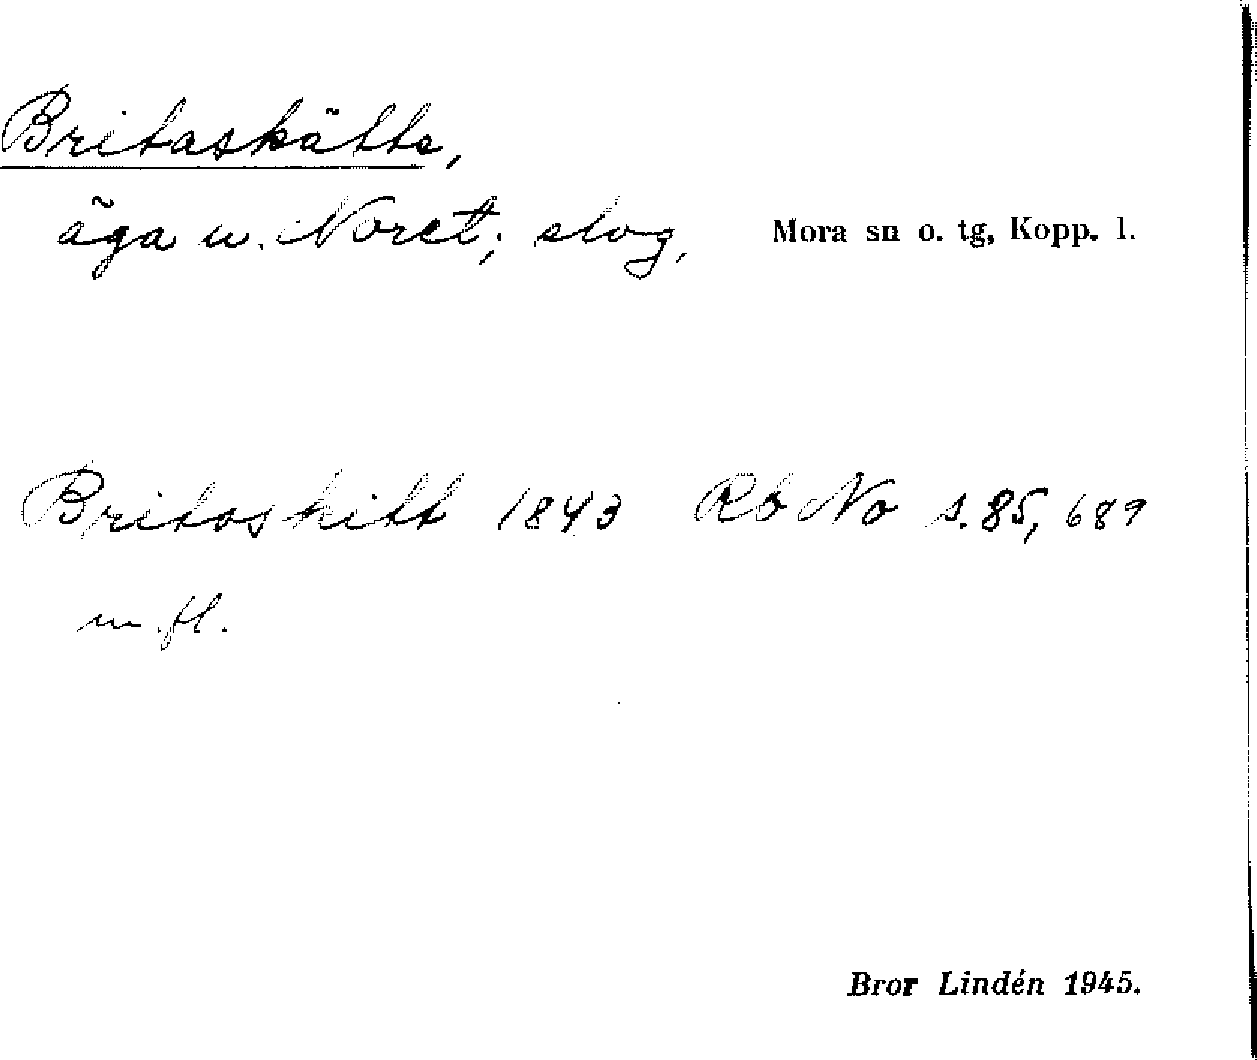 Britaskätte,
äga u. Noret; slog, Mora sn o. tg, Kopp. l.
Britaskitt 1843 Rb No s. 85, 689
m.fl.
Bror Lindén 1945.